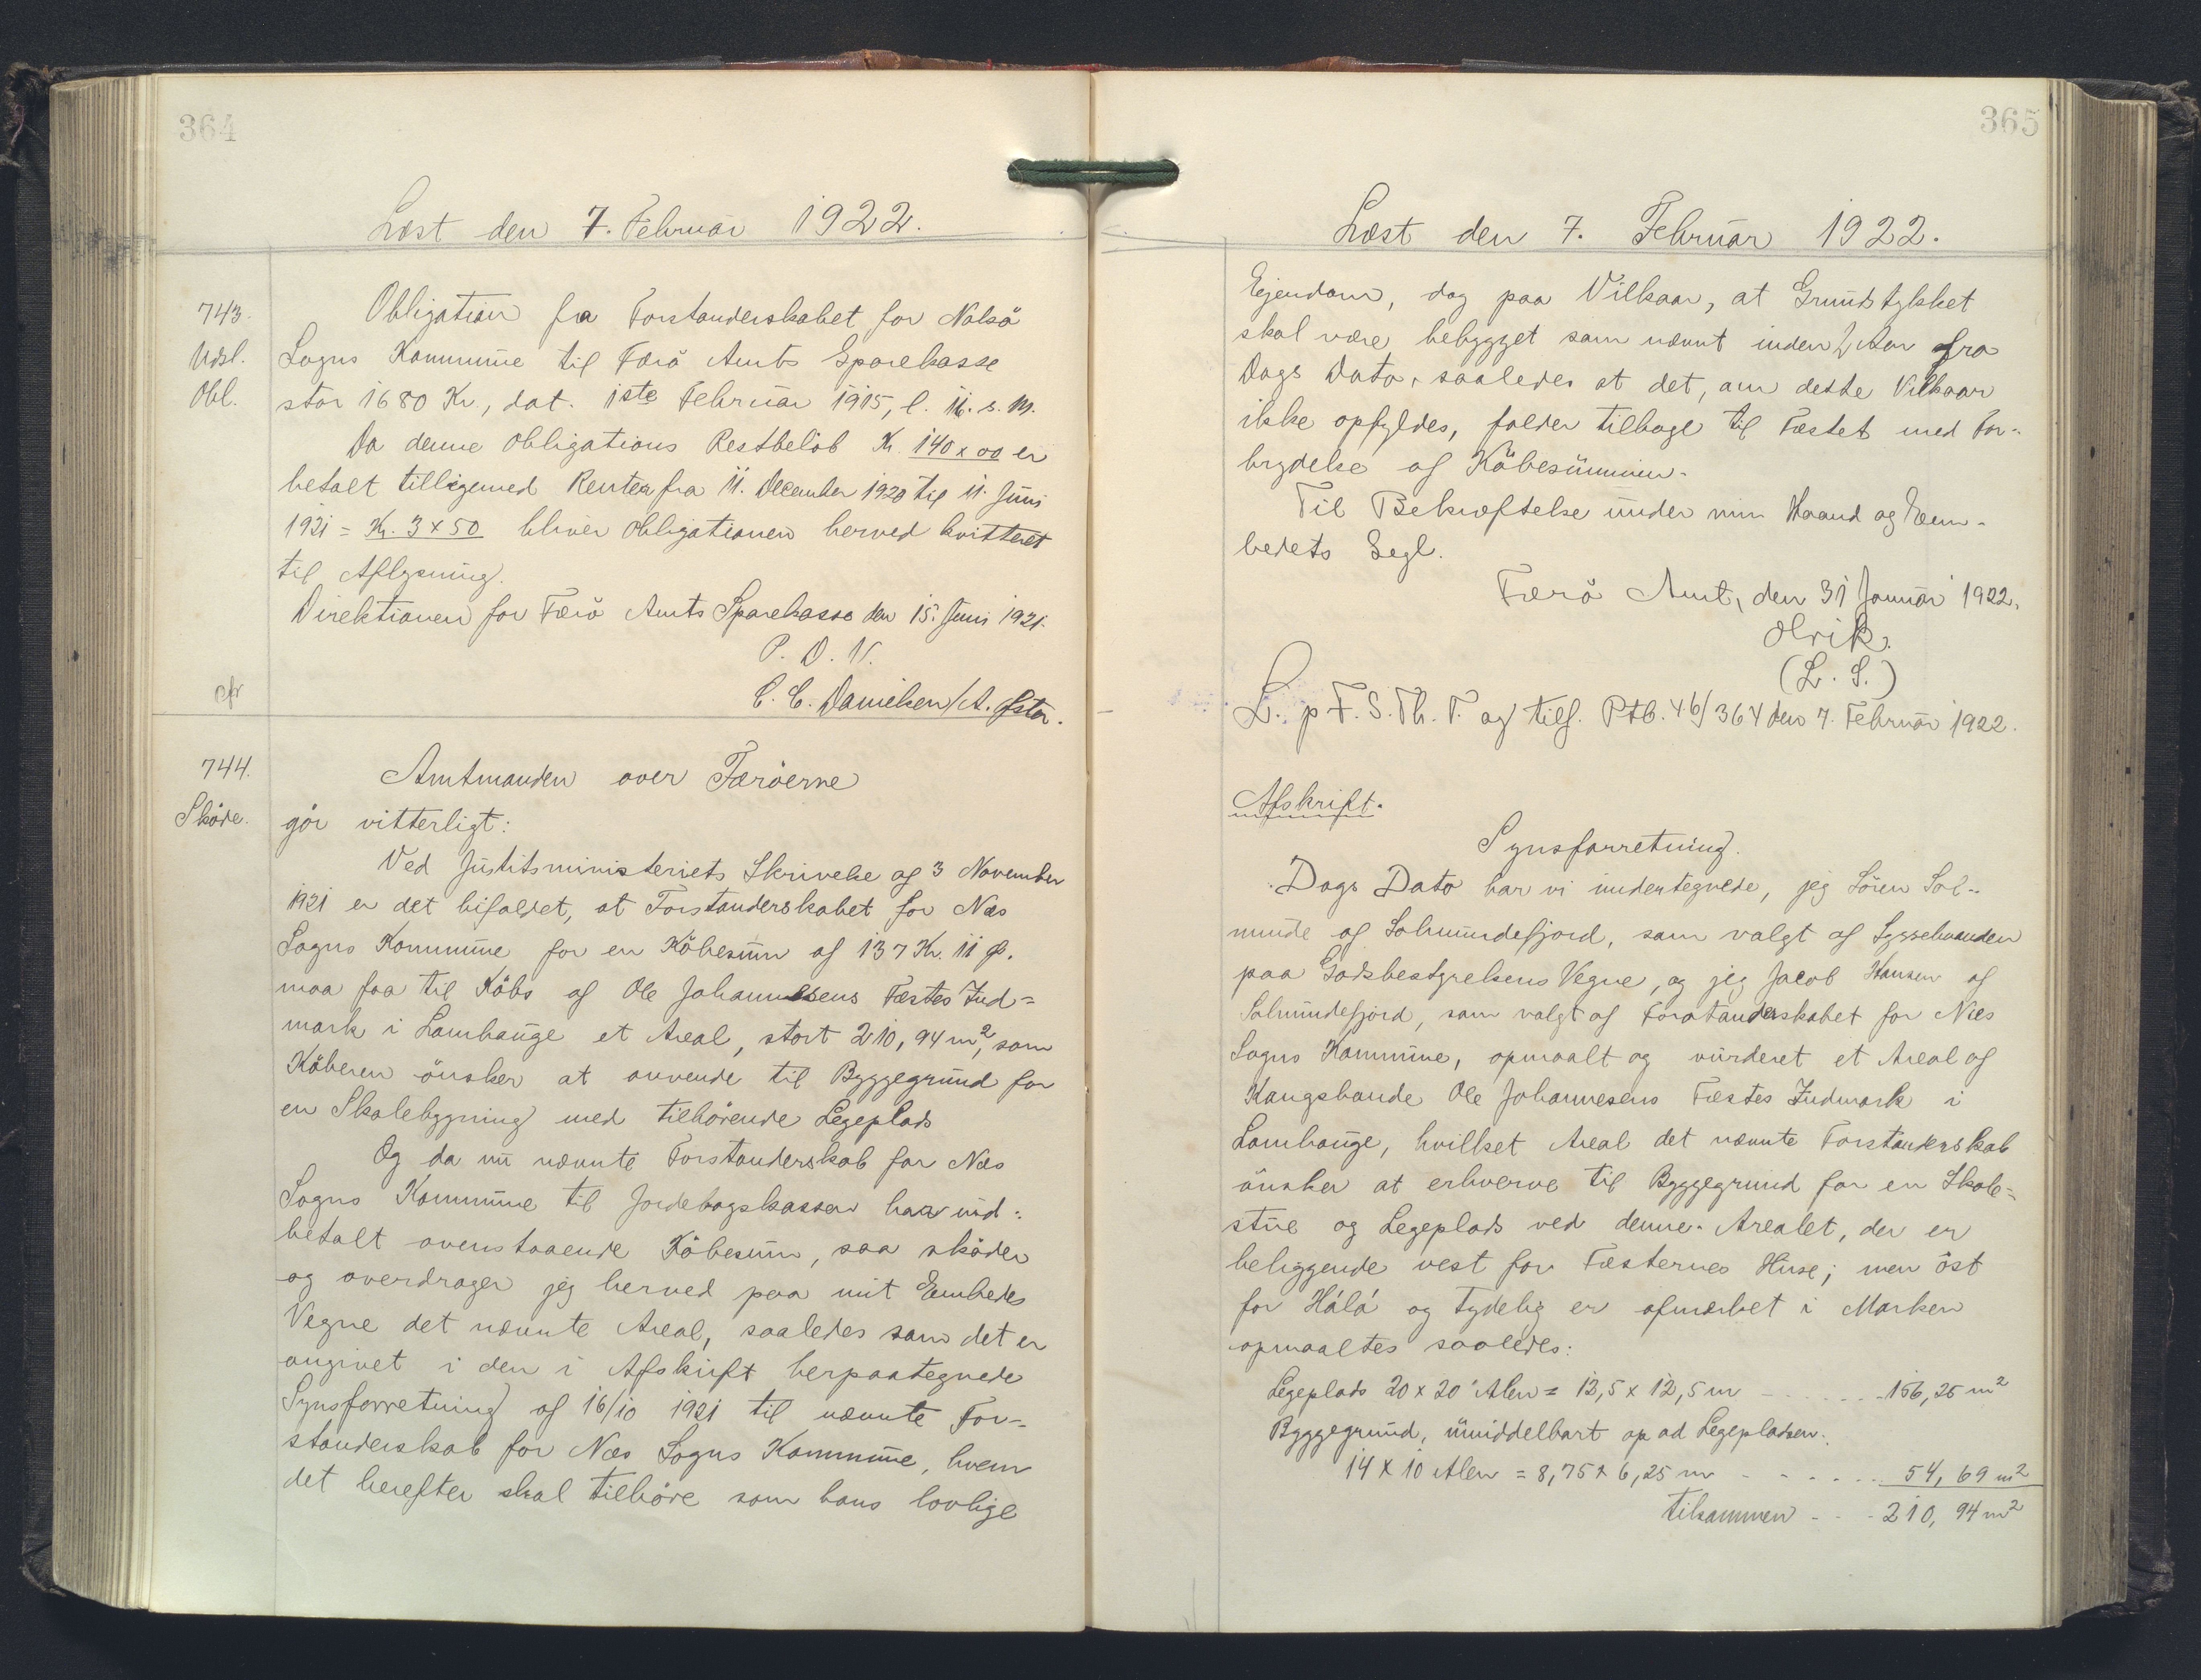 364
Læst den 7. Februar 1922.
743.
Udsl.
Obl.
Obligation fra Forstanderskabet for Nolsö
Sogns Kommune til Færö Amts Sparekasse
stor 1680 Kr., dat. 1ste Februar 1915, l. 16. s. M.
Da denne Obligations Restbelöb Kr. 140 x 00 er
betalt tilligemed Renter fra 11. December 1920 til 11. Juni
1921 = Kr. 3 x 50 bliver Obligationen herved kvitteret
til Aflysning.
Direktionen for Færö Amts Sparekasse den 15. Juni 1921.
P. D. V.
C. C. Danielsen/A.
cfr
744.
Sköde.
Amtmanden over Færöerne
gör vitterligt:
Ved Justitsministeriets Skrivelse af 3 November
1921 er det bifaldet, at Forstanderskabet for Næs
Sogns Kommune for en Köbesum af 137 Kr. 11 Ø.
maa faa til Köbs af Ole Johannesens Fæstes Ind=
mark i Lambauge et Areal, stort 210,94 m², som
Köberen önsker at anvende til Byggegrund for
en Skolebygning med tilhörende Legeplads
Og da nu nævnte Forstanderskab for Næs
Sogns Kommune til Jordebogskassen har ind=
betalt ovenstaaende Köbesum, saa sköder
og overdrager jeg herved paa mit Embedes
Vegne det nævnte Areal, saaledes som det er
angivet i den i Afskrift herpaategnede
Synsforretning af 16/10 1921 til nævnte For=
standerskab for Næs Sogns Kommune, hvem
det herefter skal tilhöre som hans lovlige
365
Læst den 7. Februar 1922.
Ejendom, dog paa Vilkaar, at Grundstykket
skal være bebygget som nævnt inden 2 Aar fra
Dags Dato, saaledes at det, om dette Vilkaar
ikke opfyldes, falder tilbage til Fæstet med For-
brydelse af Köbesummen.
Til Bekræftelse under min Haand og Em-
bedets Segl.
Færö Amt, den 31 Januar 1922.
Olrik.
(L. S.)
L. p F. S. Th. T. og tilf. Ptb. 46/364 den 7. Februar 1922.
Afskrift.
Synsforretning.
Dags Dato har vi undertegnede, jeg Sören Sol-
munde af Solmundefjord, som valgt af Sysselmanden
paa Godsbestyrelsens Vegne, og jeg Jacob Hansen af
Solmundefjord, som valgt af Forstanderskabet for Næs
Sogns Kommune, opmaalt og vurderet et Areal af
Kongsbonde Ole Johannesens Fæstes Indmark i
Lambauge, hvilket Areal det nævnte Forstanderskab
önsker at erhverve til Byggegrund for en Skole=
stue og Legeplads ved denne. Arealet, der er
beliggende vest for Fæsternes Huse; men öst
for Hálá og tydelig er afmærket i Marken
opmaaltes saaledes:
Legeplads 20 x 20 Alen = 12,5 x 12,5 m - - - - - - 156,25 m²
Byggegrund, umiddelbart op ad Legepladsen.
14 x 10 Alen = 8,75 x 6,25 m - - - - - - 54,69 m²
tilsammen - - - 210,94 m²